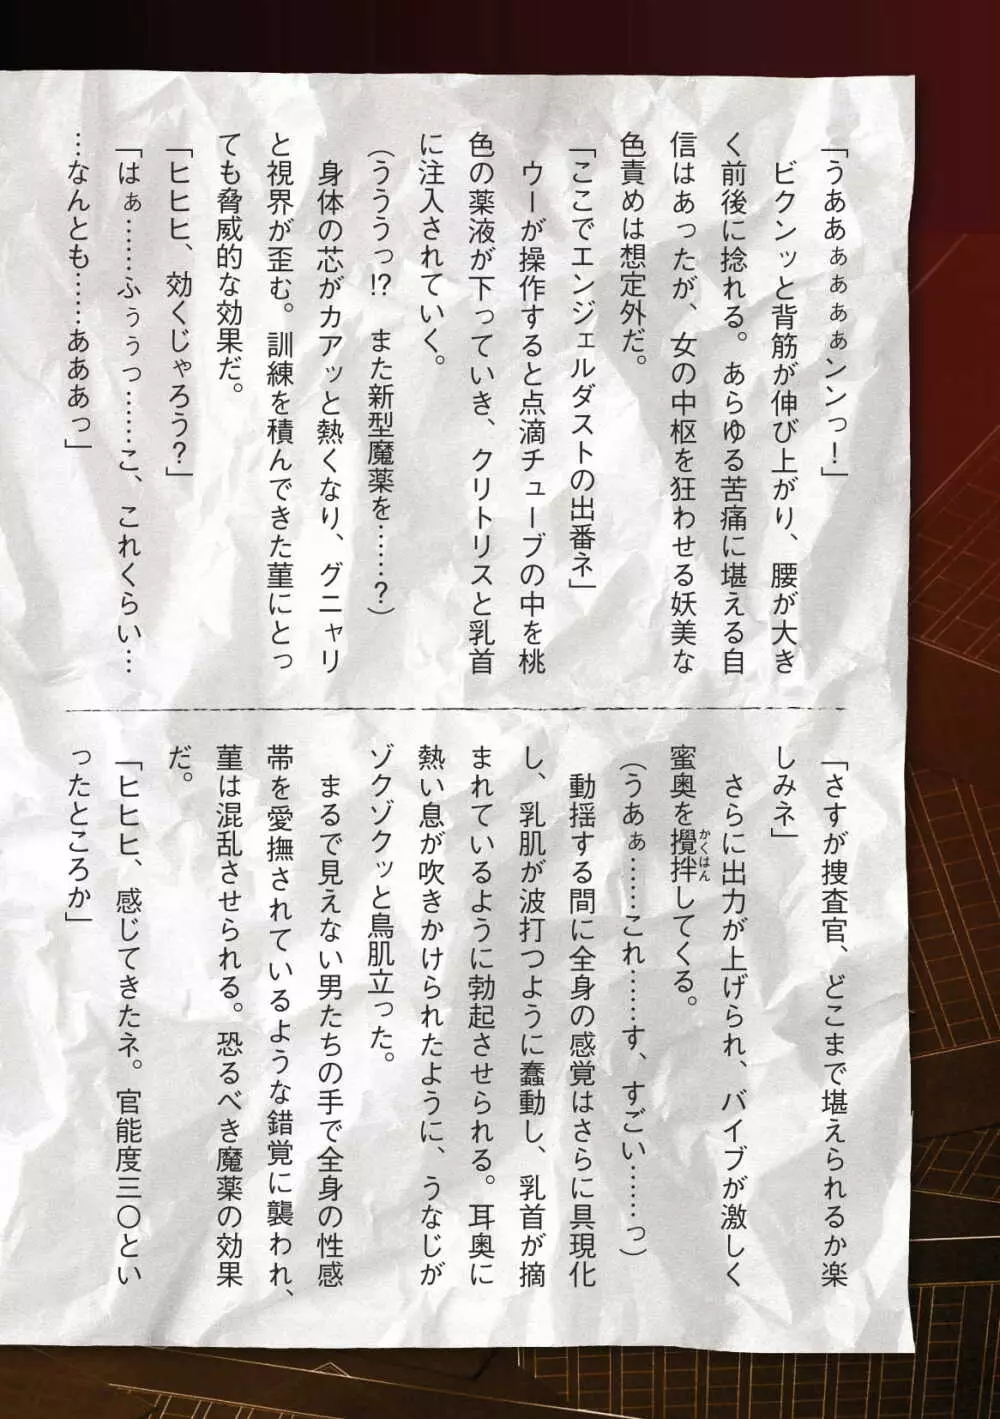 「うああぁぁぁぁンンっ！」
ビクンッと背筋が伸び上がり、腰が大き
く前後に捻れる。あらゆる苦痛に堪える自
信はあったが、女の中枢を狂わせる妖美な
色責めは想定外だ。
「ここでエンジェルダストの出番ネ」
ウーが操作すると点滴チューブの中を桃
色の薬液が下っていき、クリトリスと乳首
に注入されていく。
（うううっ!?　また新型魔薬を……？）
身体の芯がカアッと熱くなり、グニャリ
と視界が歪む。訓練を積んできた菫にとっ
ても脅威的な効果だ。
「ヒヒヒ、効くじゃろう？」
「はぁ……ふぅうっ……こ、これくらい…
…なんとも……あああっ」
「さすが捜査官、どこまで堪えられるか楽
しみネ」
さらに出力が上げられ、バイブが激しく
蜜奥を攪拌かくはんしてくる。
（うあぁ……これ……す、すごい……っ）
動揺する間に全身の感覚はさらに具現化
し、乳肌が波打つように蠢動し、乳首が摘
まれているように勃起させられる。耳奥に
熱い息が吹きかけられたように、うなじが
ゾクゾクッと鳥肌立った。
まるで見えない男たちの手で全身の性感
帯を愛撫されているような錯覚に襲われ、
菫は混乱させられる。恐るべき魔薬の効果
だ。
「ヒヒヒ、感じてきたネ。官能度三〇とい
ったところか」